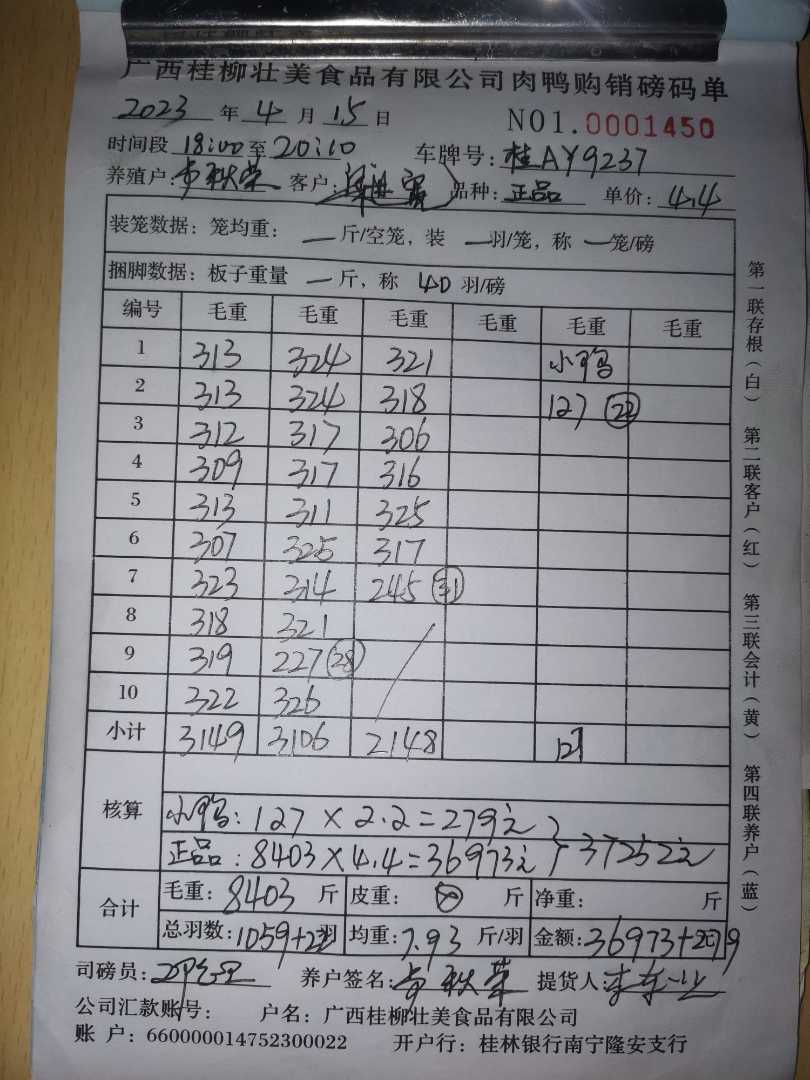 广西桂柳壮美食品有限公司肉鸭购销磅码单
2023 年 4 月 15 日 NO1.0001450
时间段 18:00 至 20:10 车牌号: 桂AY9237
养殖户: 秋荣 客户: 品种: 正品 单价: 4.4
装笼数据: 笼均重: 一 斤/空笼, 装 一 羽/笼, 称 一 笼/磅
捆脚数据: 板子重量 一 斤, 称 40 羽/磅
编号 毛重 毛重 毛重 毛重 毛重 毛重
1 313 324 321 小鸭
2 313 324 318 127 22
3 312 317 306
4 309 317 316
5 313 311 325
6 307 325 317
7 323 314 245 31
8 318 321
9 319 227 28
10 322 326
小计 3149 3106 2148 127
核算
小鸭: 127 × 2.2 = 279元
正品: 8403 × 4.4 = 36973元 } 37252元
合计 毛重: 8403 斤 皮重: 斤 净重: 斤
总羽数: 1059+22羽 均重: 7.93 斤/羽 金额: 36973+279
司磅员: 养户签名: 秋荣 提货人:
公司汇款账号: 户名: 广西桂柳壮美食品有限公司
账 户: 660000014752300022 开户行: 桂林银行南宁隆安支行
第一联存根(白) 第二联客户(红) 第三联会计(黄) 第四联养户(蓝)